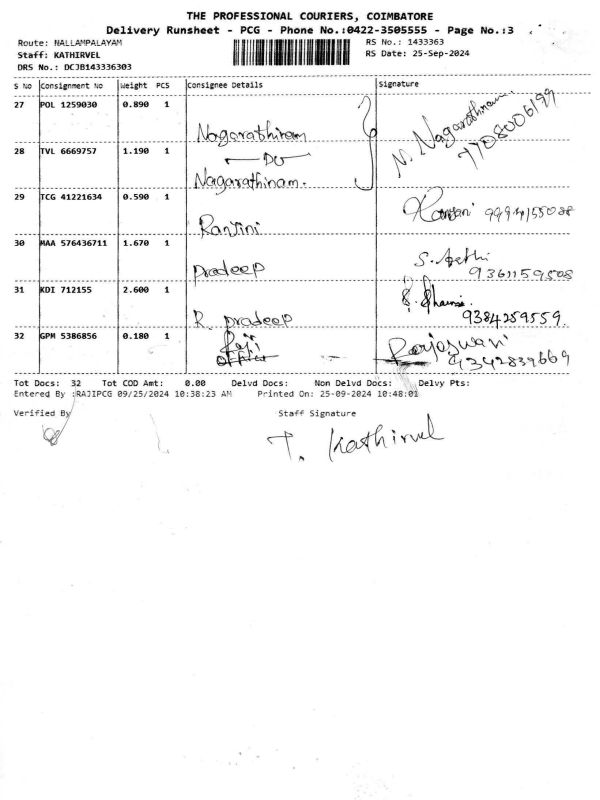 THE PROFESSIONAL COURIERS, COIMBATORE
Delivery Runsheet - PCG - Phone No.:0422-3505555 - Page No.:3
Route: NALLAMPALAYAM RS No.: 1433363
Staff: KATHIRVEL RS Date: 25-Sep-2024
DRS No.: DCJB143336303
S No Consignment No Weight PCS Consignee Details Signature
27 POL 1259030 0.890 1
Nagarathinam N. Nagarathinam
7708006199
28 TVL 6669757 1.190 1
Do
Nagarathinam.
29 TCG 41221634 0.590 1
Ranjini
30 MAA 576436711 1.670 1
Pradeep S.
9361159508
31 KDI 712155 2.600 1
R. pradeep 9384259559.
32 GPM 5386856 0.180 1
Raji Rajeswari
office 9342839669
Tot Docs: 32 Tot COD Amt: 0.00 Delvd Docs: Non Delvd Docs: Delvy Pts:
Entered By :RAJIPCG 09/25/2024 10:38:23 AM Printed On: 25-09-2024 10:48:01
Verified By Staff Signature
T. Kathirvel